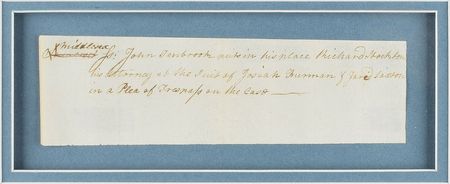 Middlesex ss John Tenbrook puts in his place Richard Stockton
his Attorney at the Suit of Josiah Thurman & Jared Saxton
in a Plea of Trespass on the Case